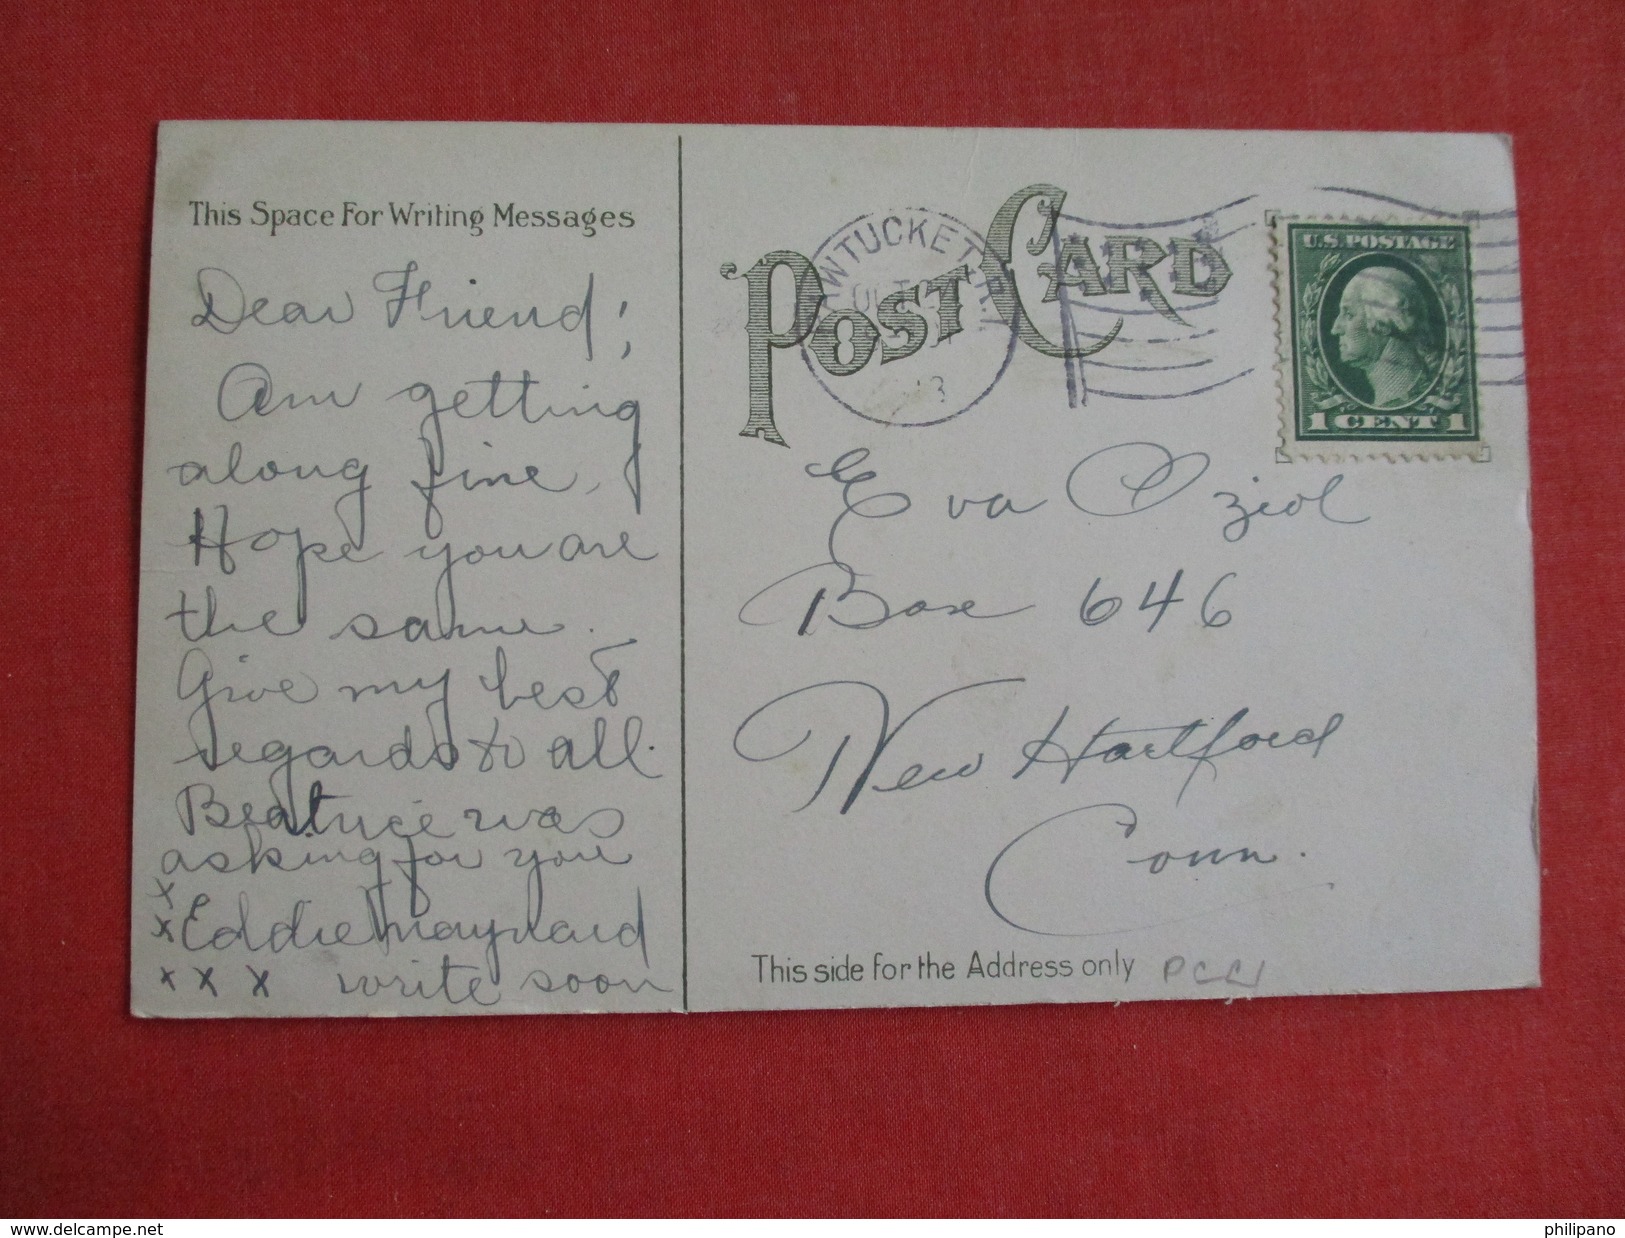 This Space For Writing Messages
Dear Friend;
Am getting
along fine,
Hope you are
the same.
Give my best
regards to all.
Beatrice was
asking for you
x
x Eddie Maynard
x x x write soon
POST CARD
PAWTUCKET, R.I.
OCT
8
U.S. POSTAGE
1 CENT 1
Eva
Box 646
New Hartford
Conn.
This side for the Address only
www.delcampe.net
philipano